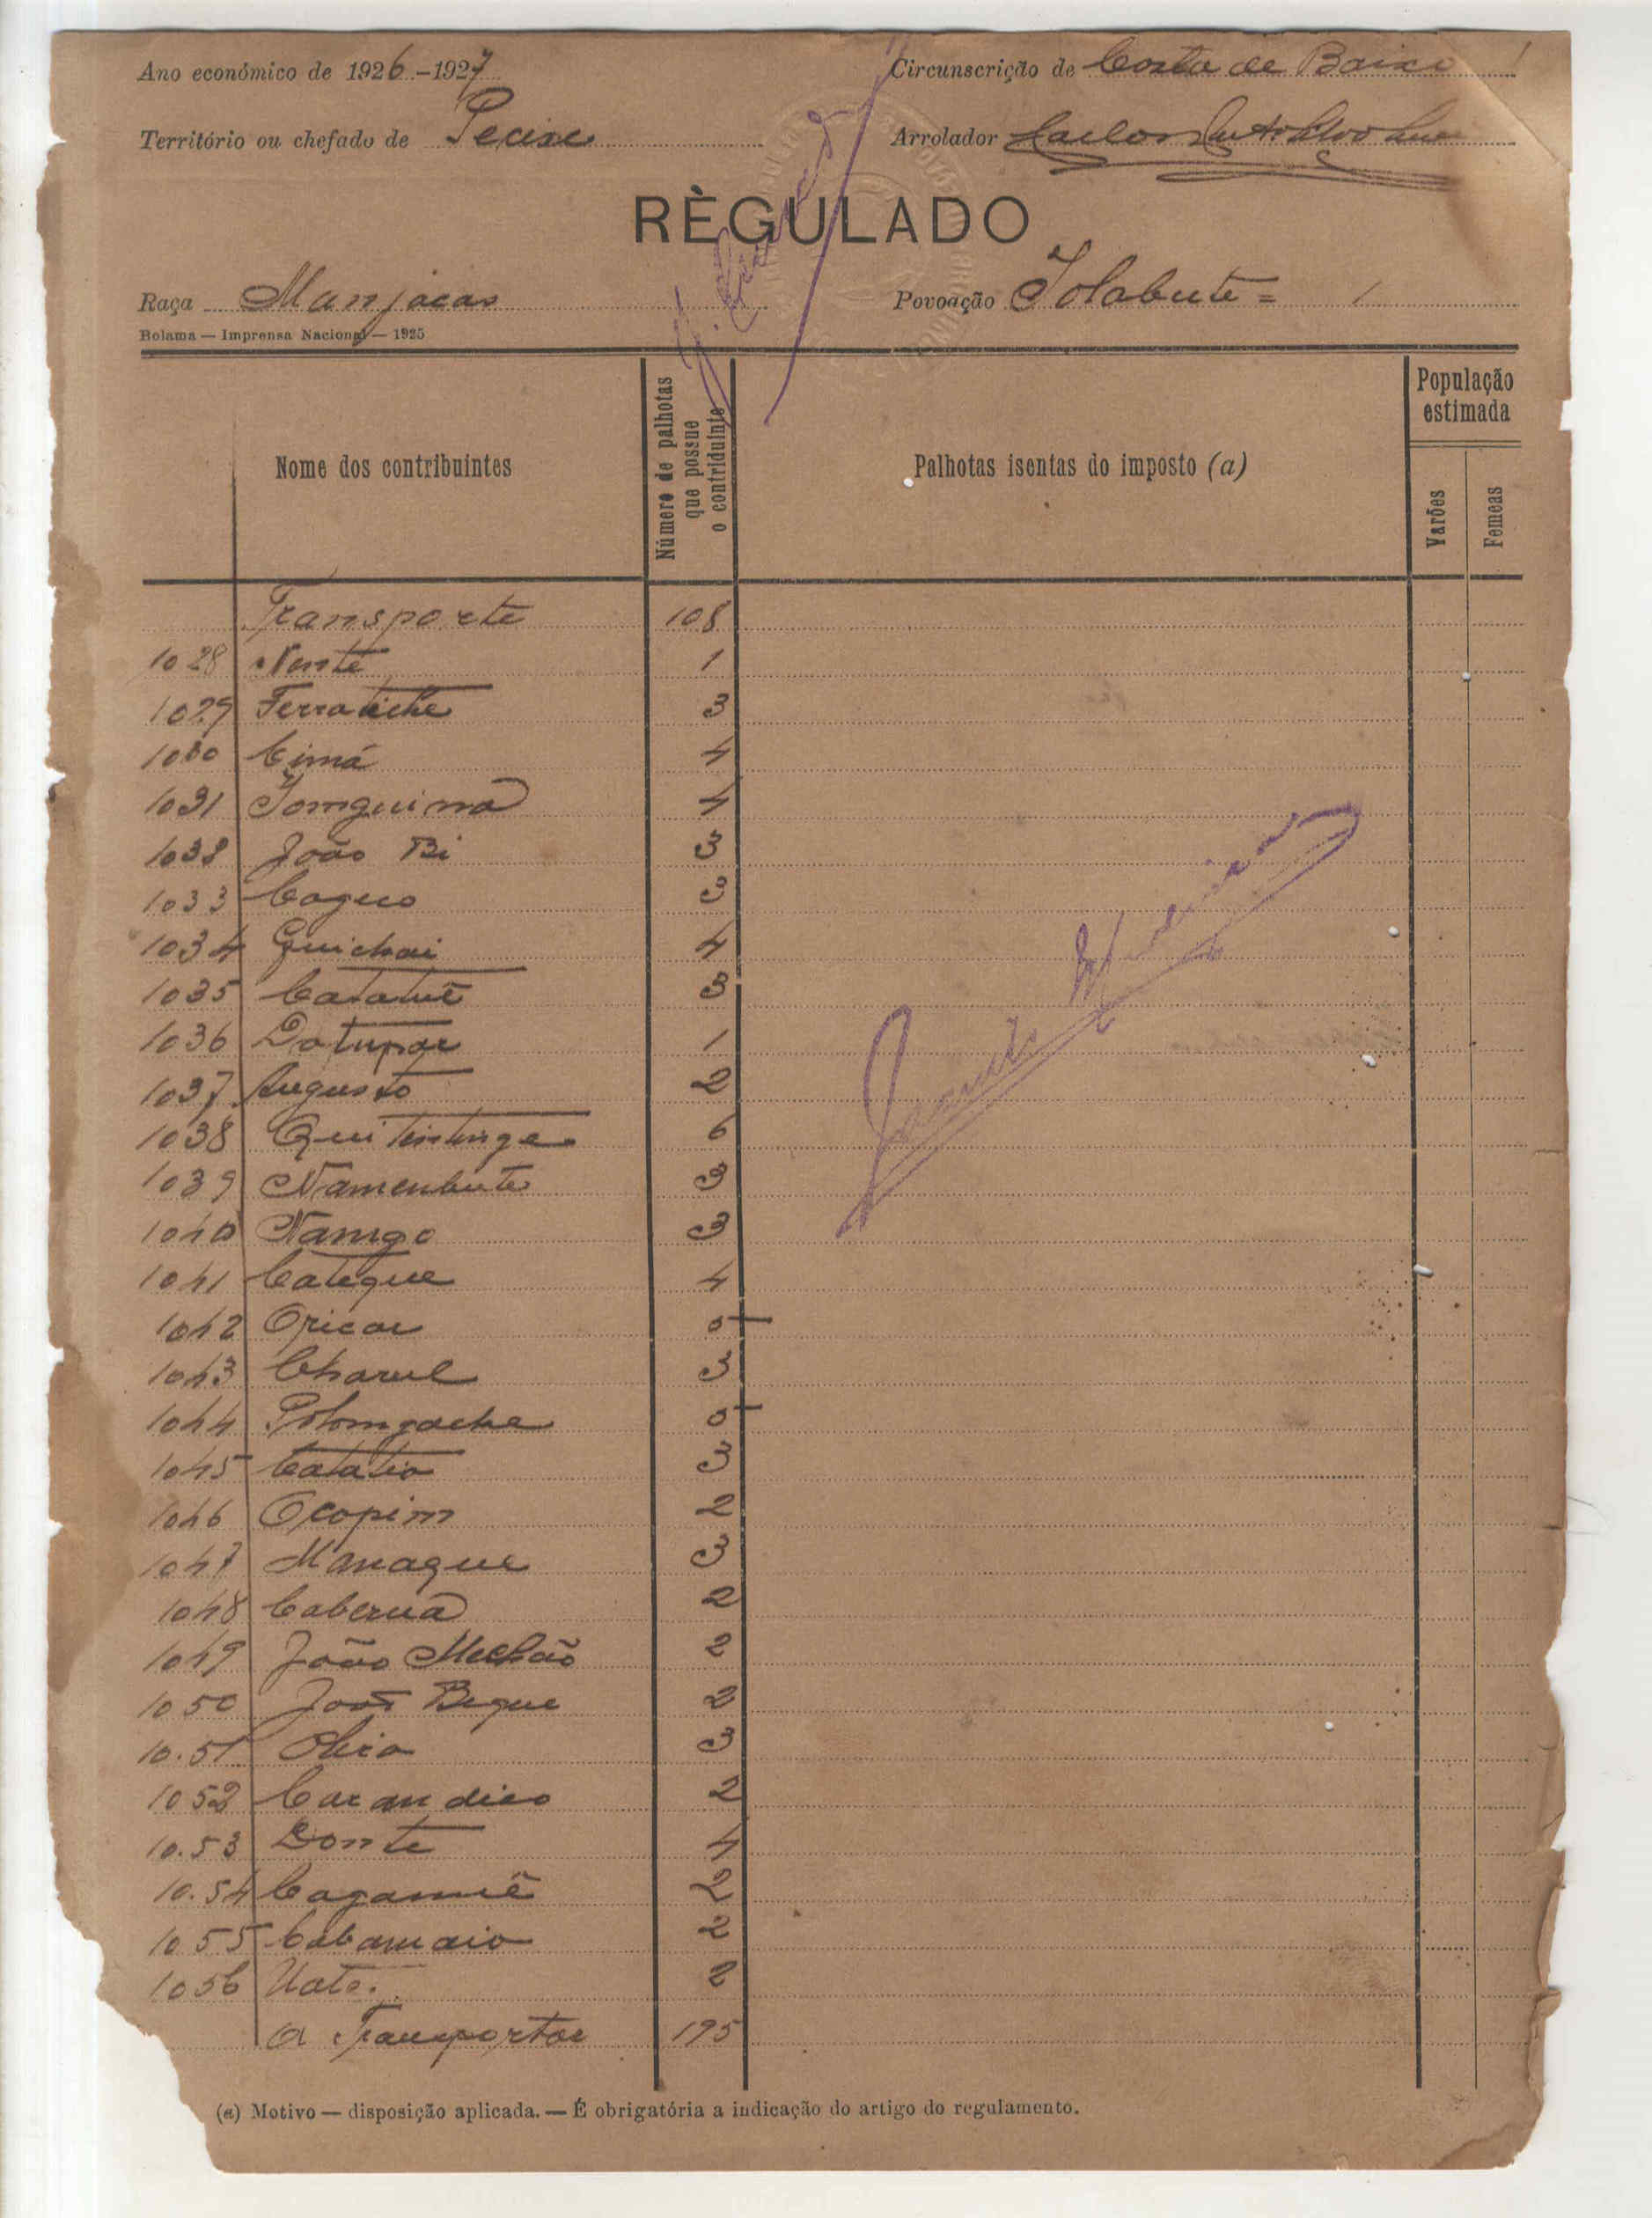 Ano económico de 1926-1927
Circunscrição de Costa de Baixo
Território ou chefado de Pecixe
Arrolador Carlos
RÈGULADO
Raça Manjacas
Povoação Tolabute =
Bolama — Imprensa Nacional — 1925
Nome dos contribuintes
Número de palhotas que possue o contriduinte
Palhotas isentas do imposto (a)
População estimada
Varões
Femeas
Transporte 108
1028 Nonte 1
1029 Ferratiche 3
1030 Cimá 4
1031 Jomguimã 4
1032 João Bi 3
1033 Caguo 3
1034 Guichai 4
1035 Catatuê 3
1036 Datupae 1
1037 Augusto 2
1038 Quitintinge 6
1039 Namenbute 3
1040 Namgo 3
1041 Categue 4
1042 Oricae 5
1043 Charul 3
1044 Polomgache 5
1045 Catatio 3
1046 Ocopim 2
1047 Manague 3
1048 Caberuã 2
1049 João Mechão 2
1050 João Begue 2
10.51 Chia 3
1052 Carandico 2
10.53 Donte 4
10.54 Cagamiê 2
1055 Cabamaio 2
1056 Uate. 2
A Transportar 195
(a) Motivo — disposição aplicada. — É obrigatória a indicação do artigo do regulamento.